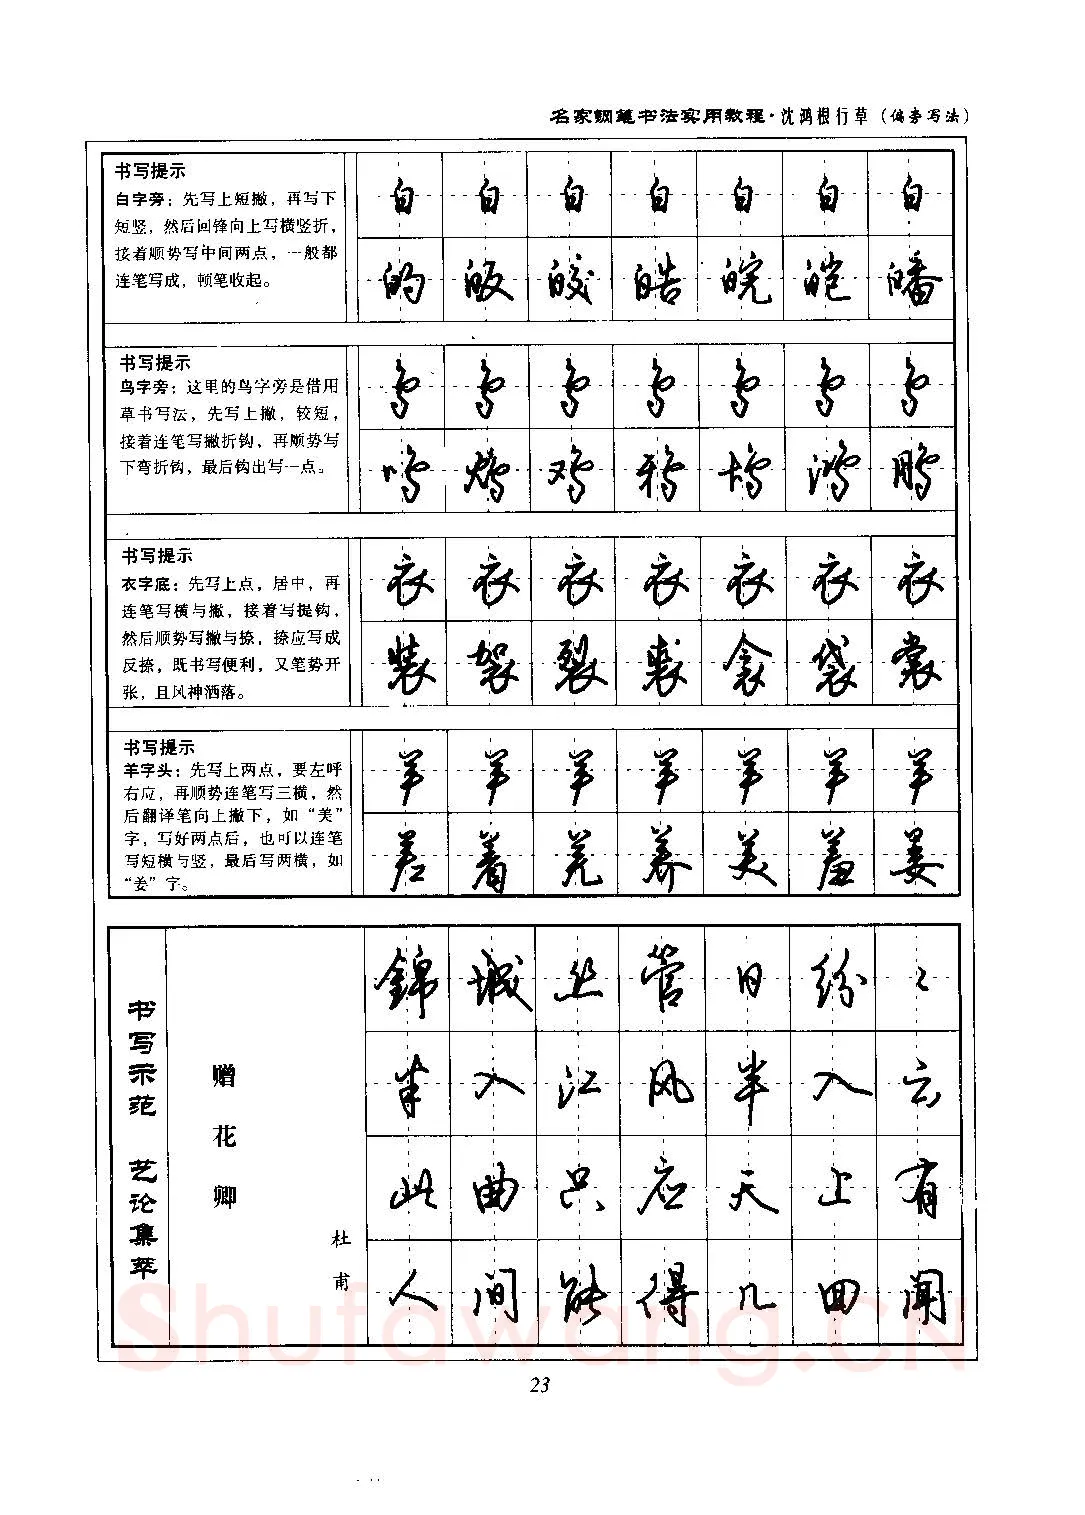 名家钢笔书法实用教程·沈鸿根行草（偏旁写法）
书写提示
白字旁：先写上短撇，再写下
短竖，然后回锋向上写横竖折，
接着顺势写中间两点，一般都
连笔写成，顿笔收起。
白白白白白白白
的皈皎皓皖皑皤
书写提示
鸟字旁：这里的鸟字旁是借用
草书写法，先写上撇，较短，
接着连笔写撇折钩，再顺势写
下弯折钩，最后钩出写一点。
鸟鸟鸟鸟鸟鸟鸟
鸣鸡鸦鸪鸿鹏
书写提示
衣字底：先写上点，居中，再
连笔写横与撇，接着写提钩，
然后顺势写撇与捺，捺应写成
反捺，既书写便利，又笔势开
张，且风神洒落。
衣衣衣衣衣衣衣
装袈裂裘衾袋裳
书写提示
羊字头：先写上两点，要左呼
右应，再顺势连笔写三横，然
后翻译笔向上撇下，如“美”
字，写好两点后，也可以连笔
写短横与竖，最后写两横，如
“姜”字。
羊羊羊羊羊羊羊
差着羌养美羞姜
书写示范 艺论集萃
赠花卿
杜甫
錦城丝管日纷々
半入江风半入云
此曲只应天上有
人间能得几回闻
Shufawang.CN
23